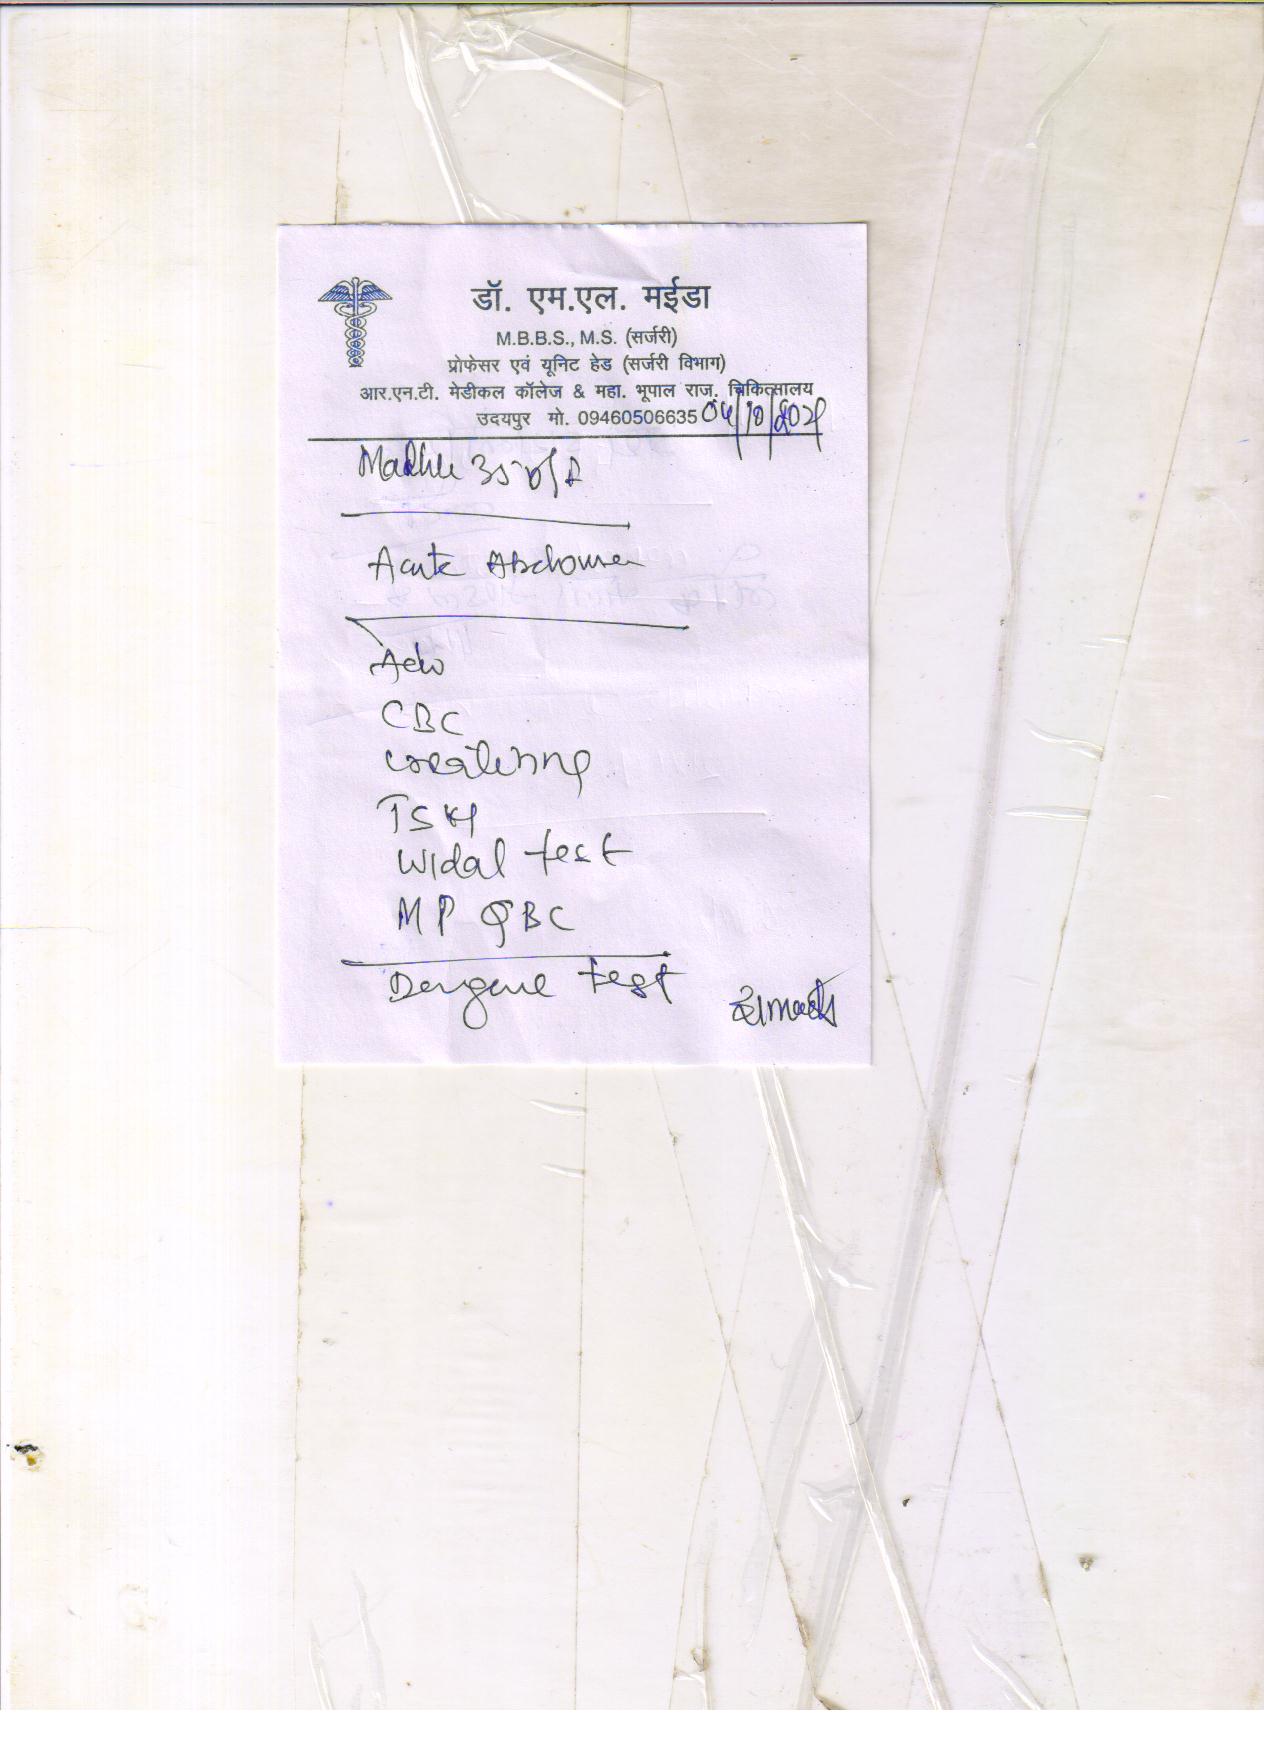 डॉ. एम.एल. मईडा
M.B.B.S., M.S. (सर्जरी)
प्रोफेसर एवं यूनिट हेड (सर्जरी विभाग)
आर.एन.टी. मेडीकल कॉलेज & महा. भूपाल राज. चिकित्सालय
उदयपुर मो. 09460506635 04/10/2021
Madhu 35
Acute Abdomen
Adv
CBC
creatinine
TSH
Widal test
MP QBC
Dengue test